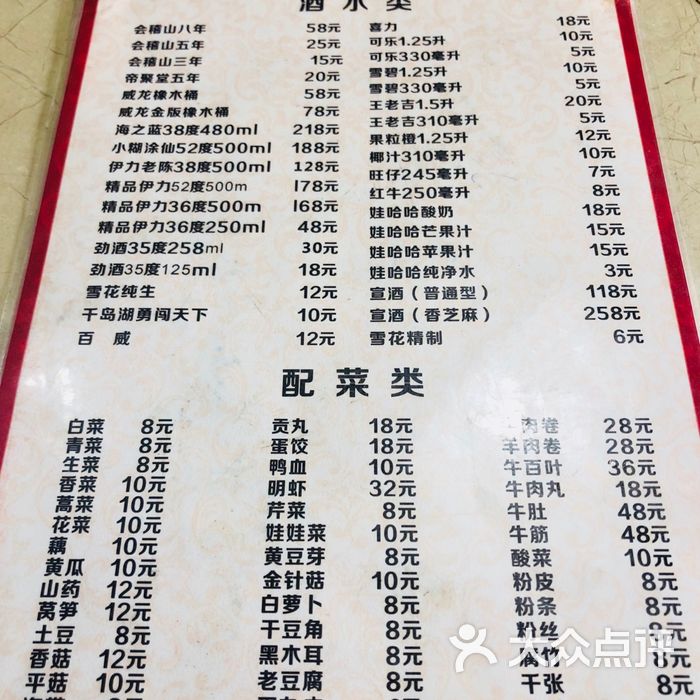 酒水类
会稽山八年 58元
会稽山五年 25元
会稽山三年 15元
帝聚堂五年 20元
威龙橡木桶 58元
威龙金版橡木桶 78元
海之蓝38度480ml 218元
小糊涂仙52度500ml 188元
伊力老陈38度500ml 128元
精品伊力52度500m 178元
精品伊力36度500ml 168元
精品伊力36度250ml 48元
劲酒35度258ml 30元
劲酒35度125ml 18元
雪花纯生 12元
千岛湖勇闯天下 10元
百威 12元
喜力 18元
可乐1.25升 10元
可乐330毫升 5元
雪碧1.25升 10元
雪碧330毫升 5元
王老吉1.5升 20元
王老吉310毫升 5元
果粒橙1.25升 12元
椰汁310毫升 10元
旺仔245毫升 7元
红牛250毫升 8元
娃哈哈酸奶 18元
娃哈哈芒果汁 15元
娃哈哈苹果汁 15元
娃哈哈纯净水 3元
宣酒（普通型） 118元
宣酒（香芝麻） 258元
雪花精制 6元
配菜类
白菜 8元
青菜 8元
生菜 8元
香菜 10元
蒿菜 10元
花菜 10元
藕 10元
黄瓜 10元
山药 12元
莴笋 12元
土豆 8元
香菇 12元
平菇 10元
贡丸 18元
蛋饺 18元
鸭血 10元
明虾 32元
芹菜 8元
娃娃菜 10元
黄豆芽 8元
金针菇 10元
白萝卜 8元
干豆角 8元
黑木耳 8元
老豆腐 8元
肉卷 28元
羊肉卷 28元
牛百叶 36元
牛肉丸 18元
牛肚 48元
牛筋 48元
酸菜 10元
粉皮 8元
粉条 8元
粉丝 8元
腐竹 8元
千张 8元
大众点评